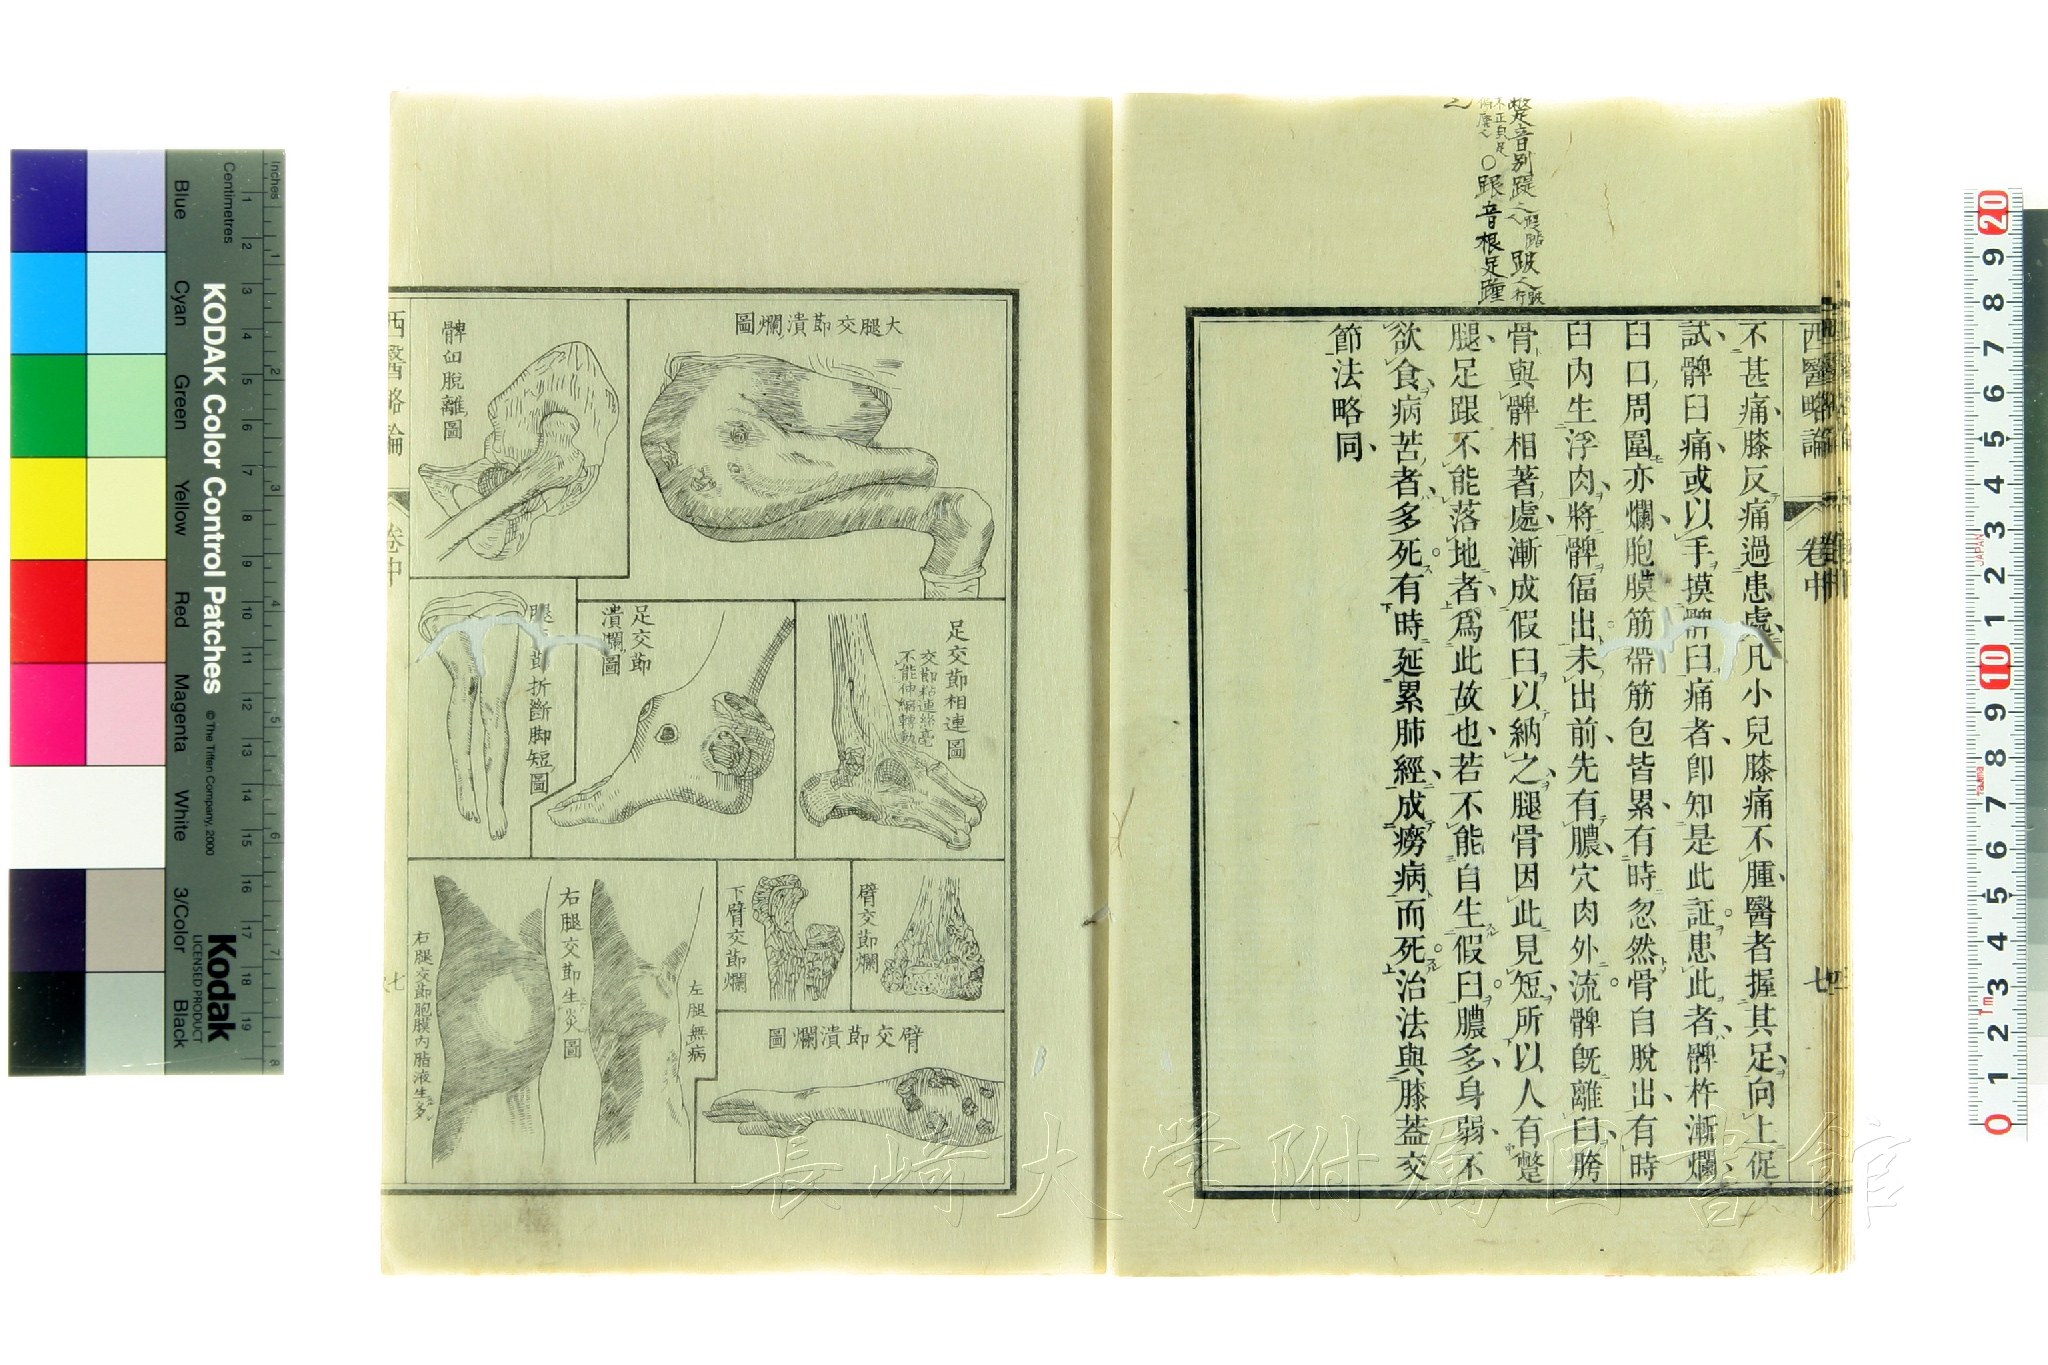 西醫略論
卷中
不甚痛膝反痛過患處凡小兒膝痛不腫醫者握其足向上促
試髀臼痛或以手摸髀臼痛者卽知是此証患此者髀杵漸爛
臼口周圍亦爛胞膜筋帶筋包皆累有時忽然骨自脫出有時
臼內生浮肉將髀偪出未出前先有膿穴肉外流髀旣離臼胯
骨與髀相著處漸成假臼以納之腿骨因此見短所以人有蹩
腿足跟不能落地者爲此故也若不能自生假臼膿多身弱不
欲食病苦者多死有時延累肺經成癆病而死治法與膝蓋交
節法略同
跟音根足踵
大腿交節潰爛圖
髀臼脫離圖
足交節相連圖
足交節
潰爛圖
折斷脚短圖
臂交節爛
下臂交節爛
臂交節潰爛圖
左腿無病
右腿交節生炎圖
右腿交節胞膜內脂液生多
西醫略論
卷中
七
長崎大学附属図書館
KODAK Color Control Patches
© The Tiffen Company, 2000
Kodak
LICENSED PRODUCT
Inches
Centimetres
Blue
Cyan
Green
Yellow
Red
Magenta
White
3/Color
Black
1 2 3 4 5 6 7 8 9 10 11 12 13 14 15 16 17 18 19
20 9 8 7 6 5 4 3 2 1 10 9 8 7 6 5 4 3 2 1 0
JAPAN